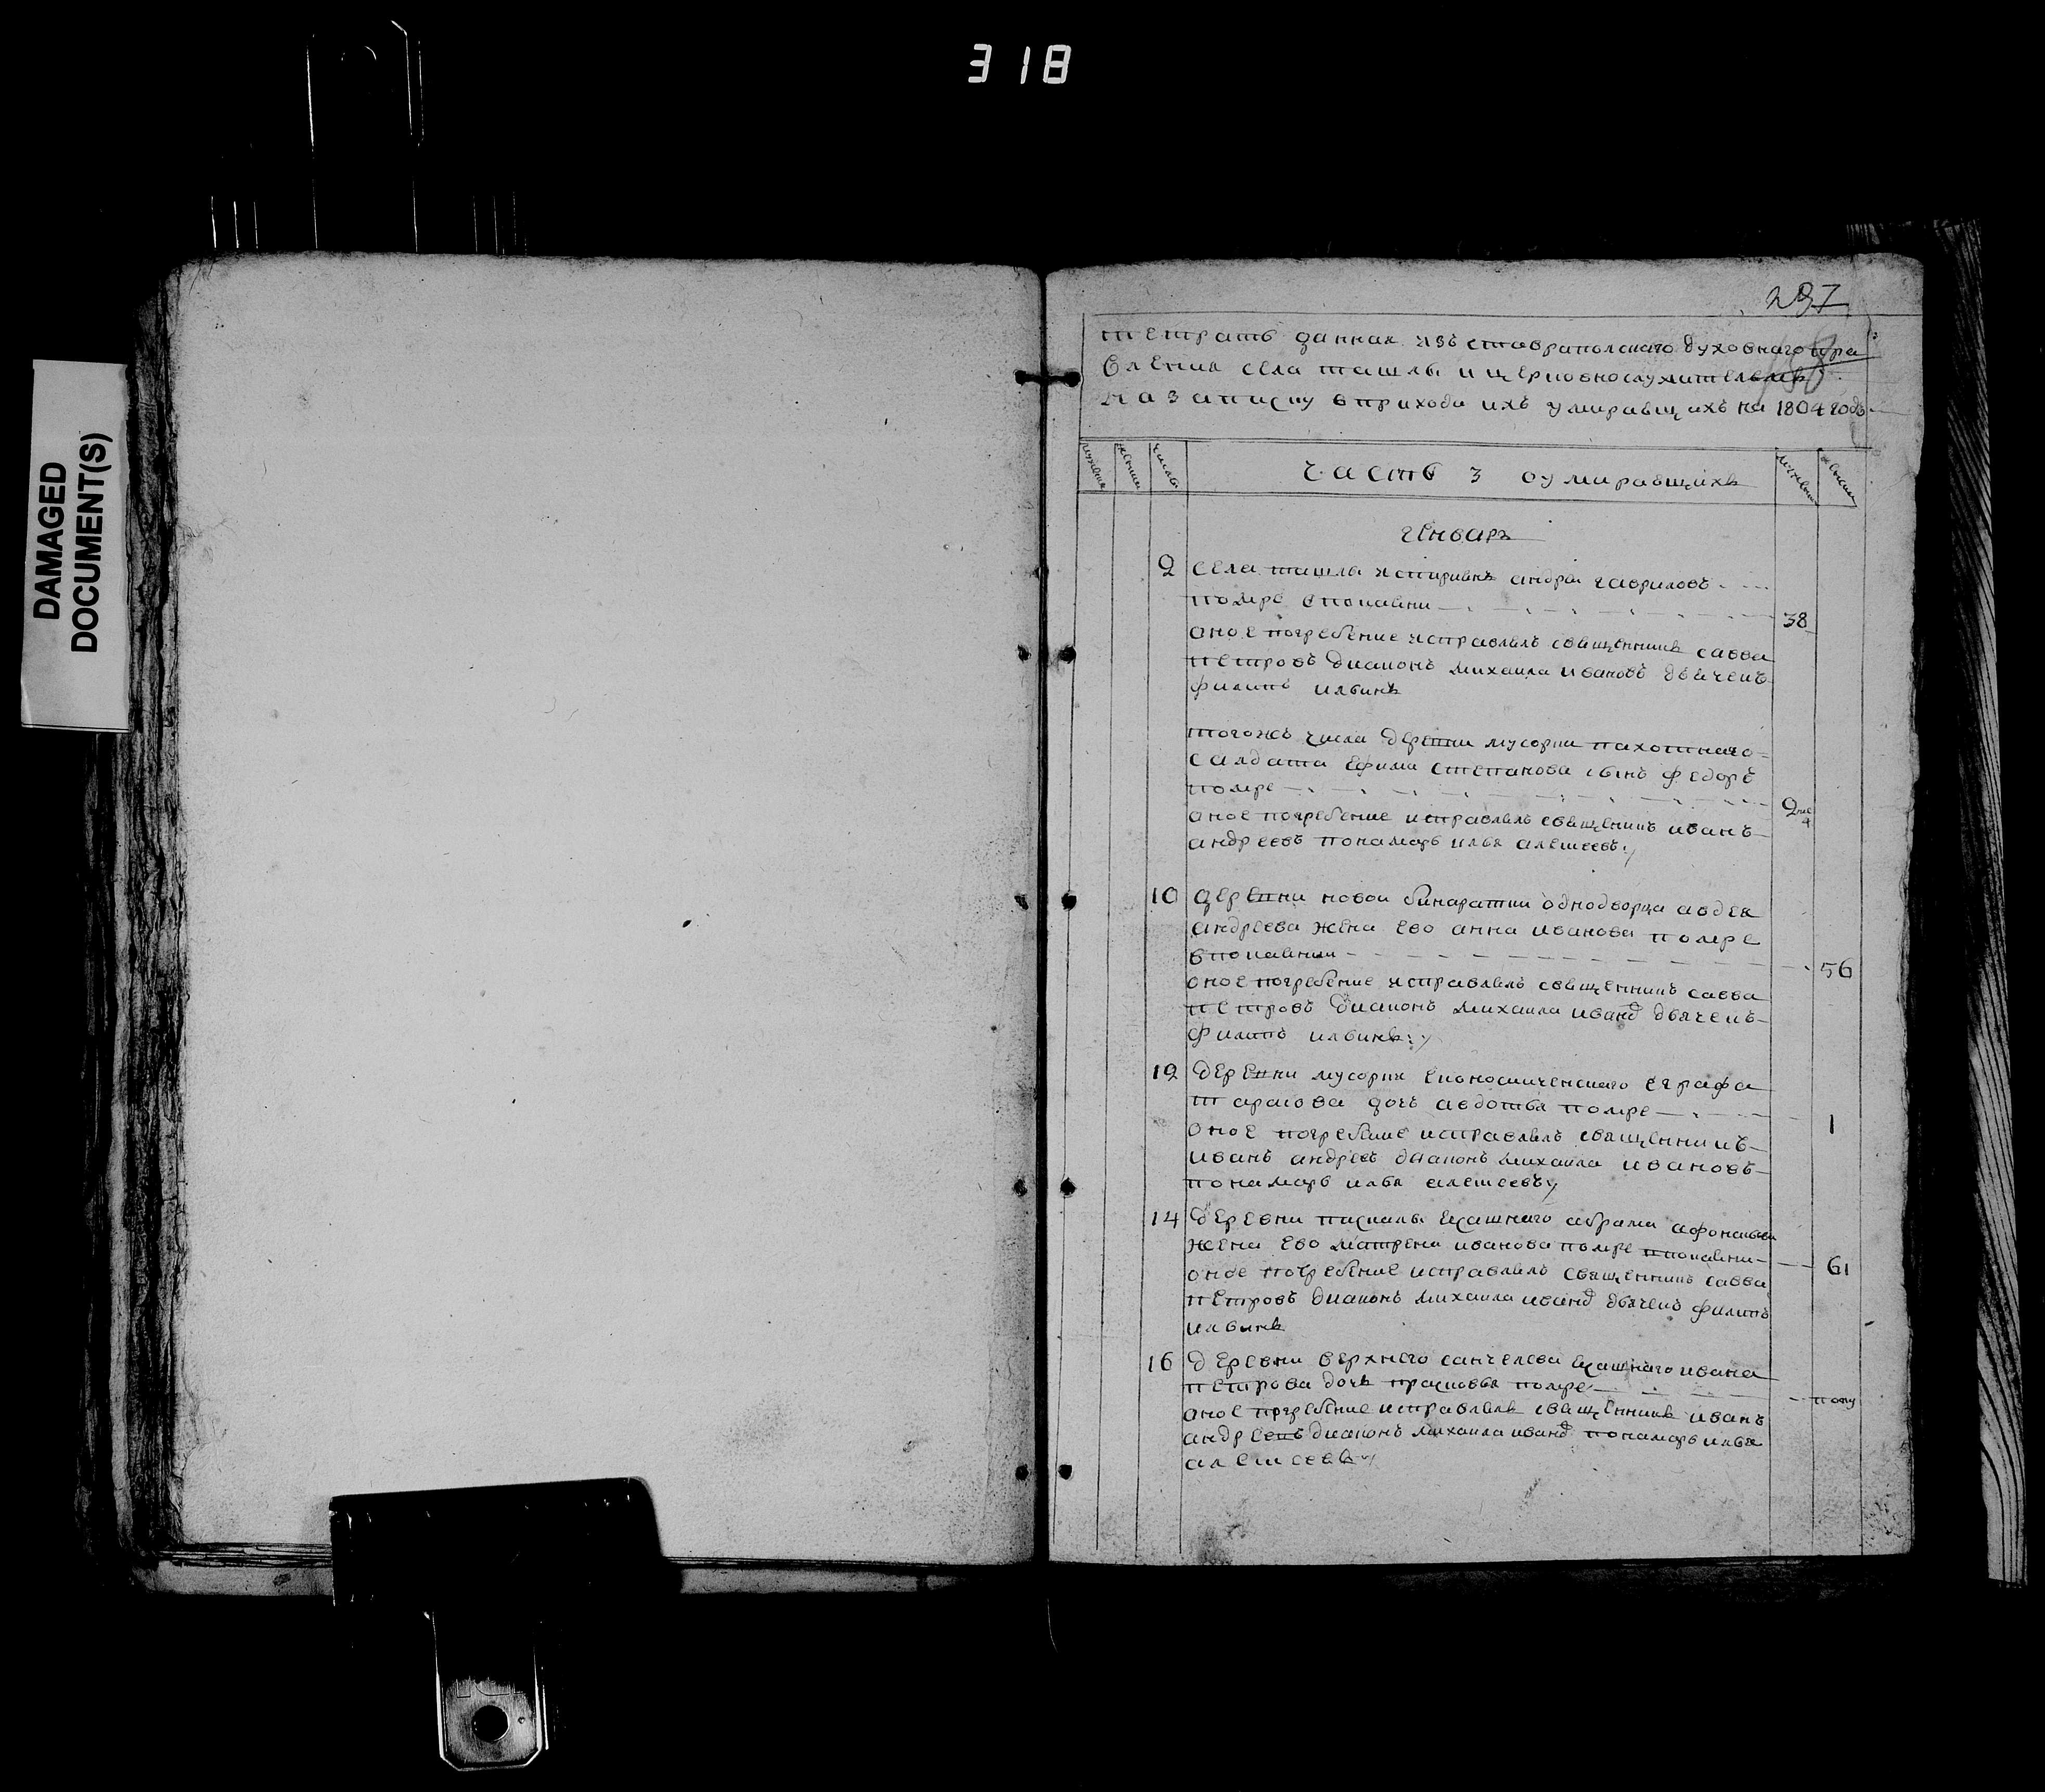 318
DAMAGED
DOCUMENT(S)
237
тетрать данная изъ ставрапольскаго духовнаго пра
вления села ташлы и церковнослужителемъ
на записку вприходи ихъ умиравщихъ на 1804 годъ
числа
часть 3 оумиравщихъ
генварь
2 села ташлы андрѣи гавриловъ
помре спокаяни 38
оное погребение исправлялъ священникъ савва
петровъ диаконъ михаила ивановъ дьячекъ
филипъ ильинъ
тогожъ числа деревни мусорки пахотнаго
салдата ефима степанова сынъ федоръ
помре 2
оное погребение исправлялъ священникъ иванъ
андреевъ понамарь илья алексеевъ
10 деревни новой бинаратки однодворца авдея
андреева жена ево анна иванова помре
спокаянии 56
оное погребение исправлялъ священникъ савва
петровъ диаконъ михаила иванов дьячекъ
филипъ ильинъ
12 деревни мусорки еграфа
тарасова дочь авдотья помре 1
оное погребение исправлялъ священникъ
иванъ андреевъ диаконъ михаила ивановъ
понамарь илья алексеевъ
14 деревни пискалы ясашнаго абрама афонасьева
жена ево матрена иванова помре спокаяни 61
оное погребение исправлялъ священникъ савва
петровъ диаконъ михаила иванов дьячекъ филипъ
ильинъ
16 деревни верхнего санчелеева ясашнаго ивана
петрова дочь прасковья помре полу
оное погребение исправлялъ священникъ иванъ
андреевъ диаконъ михаила иванов понамарь илья
алексеевъ